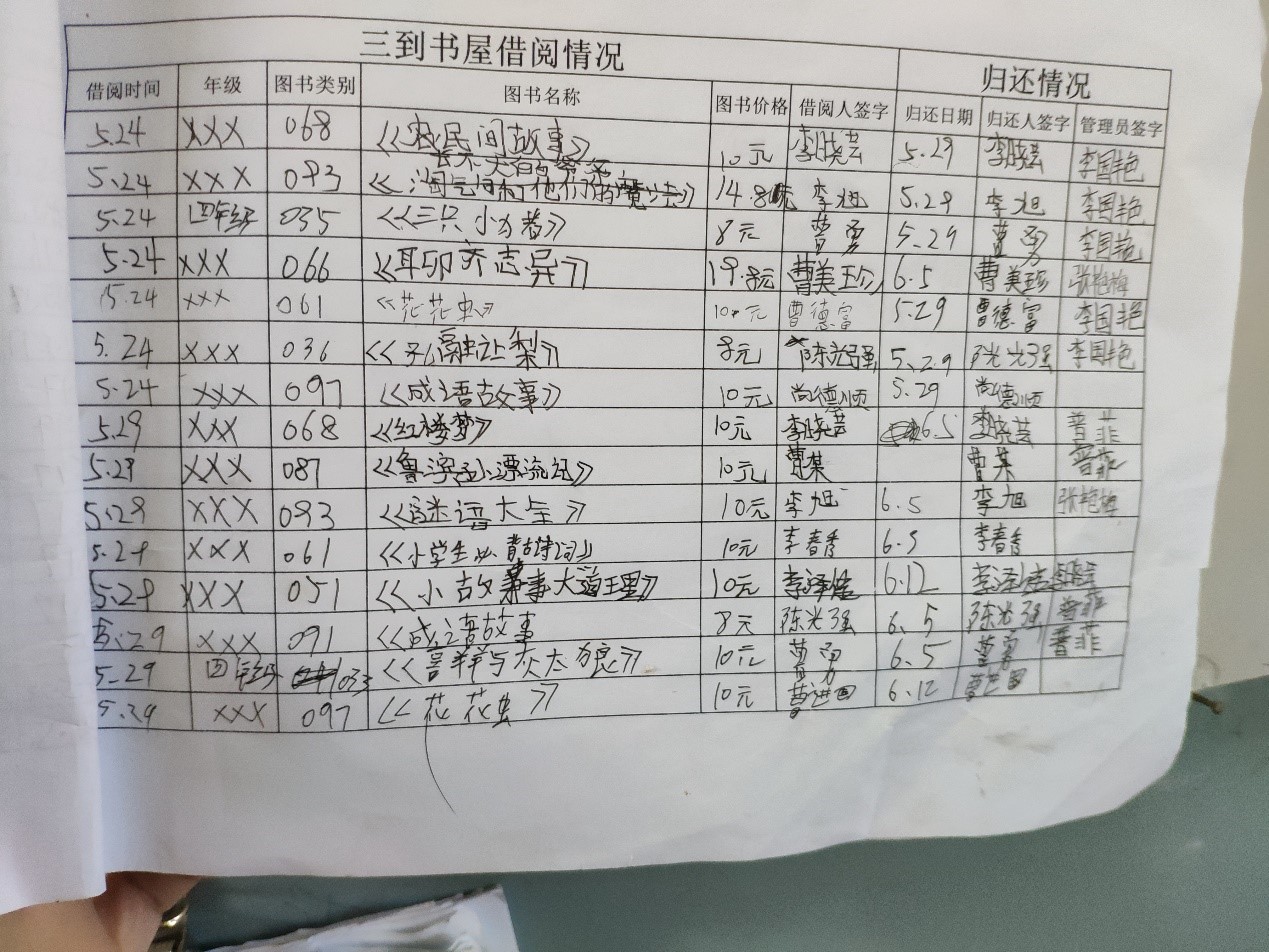 三到书屋借阅情况 归还情况
借阅时间 年级 图书类别 图书名称 图书价格 借阅人签字 归还日期 归还人签字 管理员签字
5.24 XXX 068 《民间故事》 10元 李晓芸 5.29 李晓芸 李国艳
5.24 XXX 093 《淘气包和他们的魔法》 14.8元 李旭 5.29 李旭 李国艳
5.24 四年级 035 《三只小猪》 8元 曹勇 5.29 曹勇 李国艳
5.24 XXX 066 《聊斋志异》 19.8元 曹美珍 6.5 曹美珍 张艳梅
5.24 XXX 061 《花花虫》 10元 曹德富 5.29 曹德富 李国艳
5.24 XXX 036 《孔融让梨》 8元 陈光强 5.29 陈光强 李国艳
5.24 XXX 097 《成语故事》 10元 尚德顺 5.29 尚德顺
5.29 XXX 068 《红楼梦》 10元 李晓芸 6.5 李晓芸 普菲
5.29 XXX 087 《鲁滨孙漂流记》 10元 曹某 曹某 普菲
5.29 XXX 093 《谜语大全》 10元 李旭 6.5 李旭 张艳梅
5.29 XXX 061 《小学生必背古诗词》 10元 李春香 6.5 李春香
5.29 XXX 051 《小故事大道理》 10元 李泽 6.12 李泽
5.29 XXX 091 《成语故事 8元 陈光强 6.5 陈光强 普菲
5.29 四年级 033 《喜羊羊与灰太狼》 10元 曹勇 6.5 曹勇 普菲
5.29 XXX 097 《花花虫》 10元 曹进国 6.12 曹进国